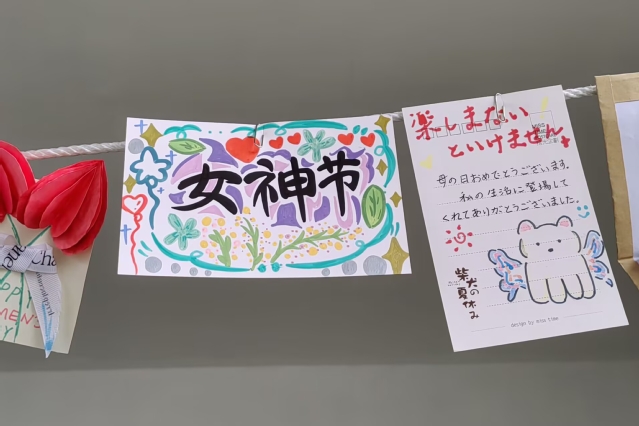 女神节
楽しまない
といけません
母の日おめでとうございます。
私の生活に登場して
くれてありがとうございました。
柴犬の
夏休み
design by moon time
MEN'S